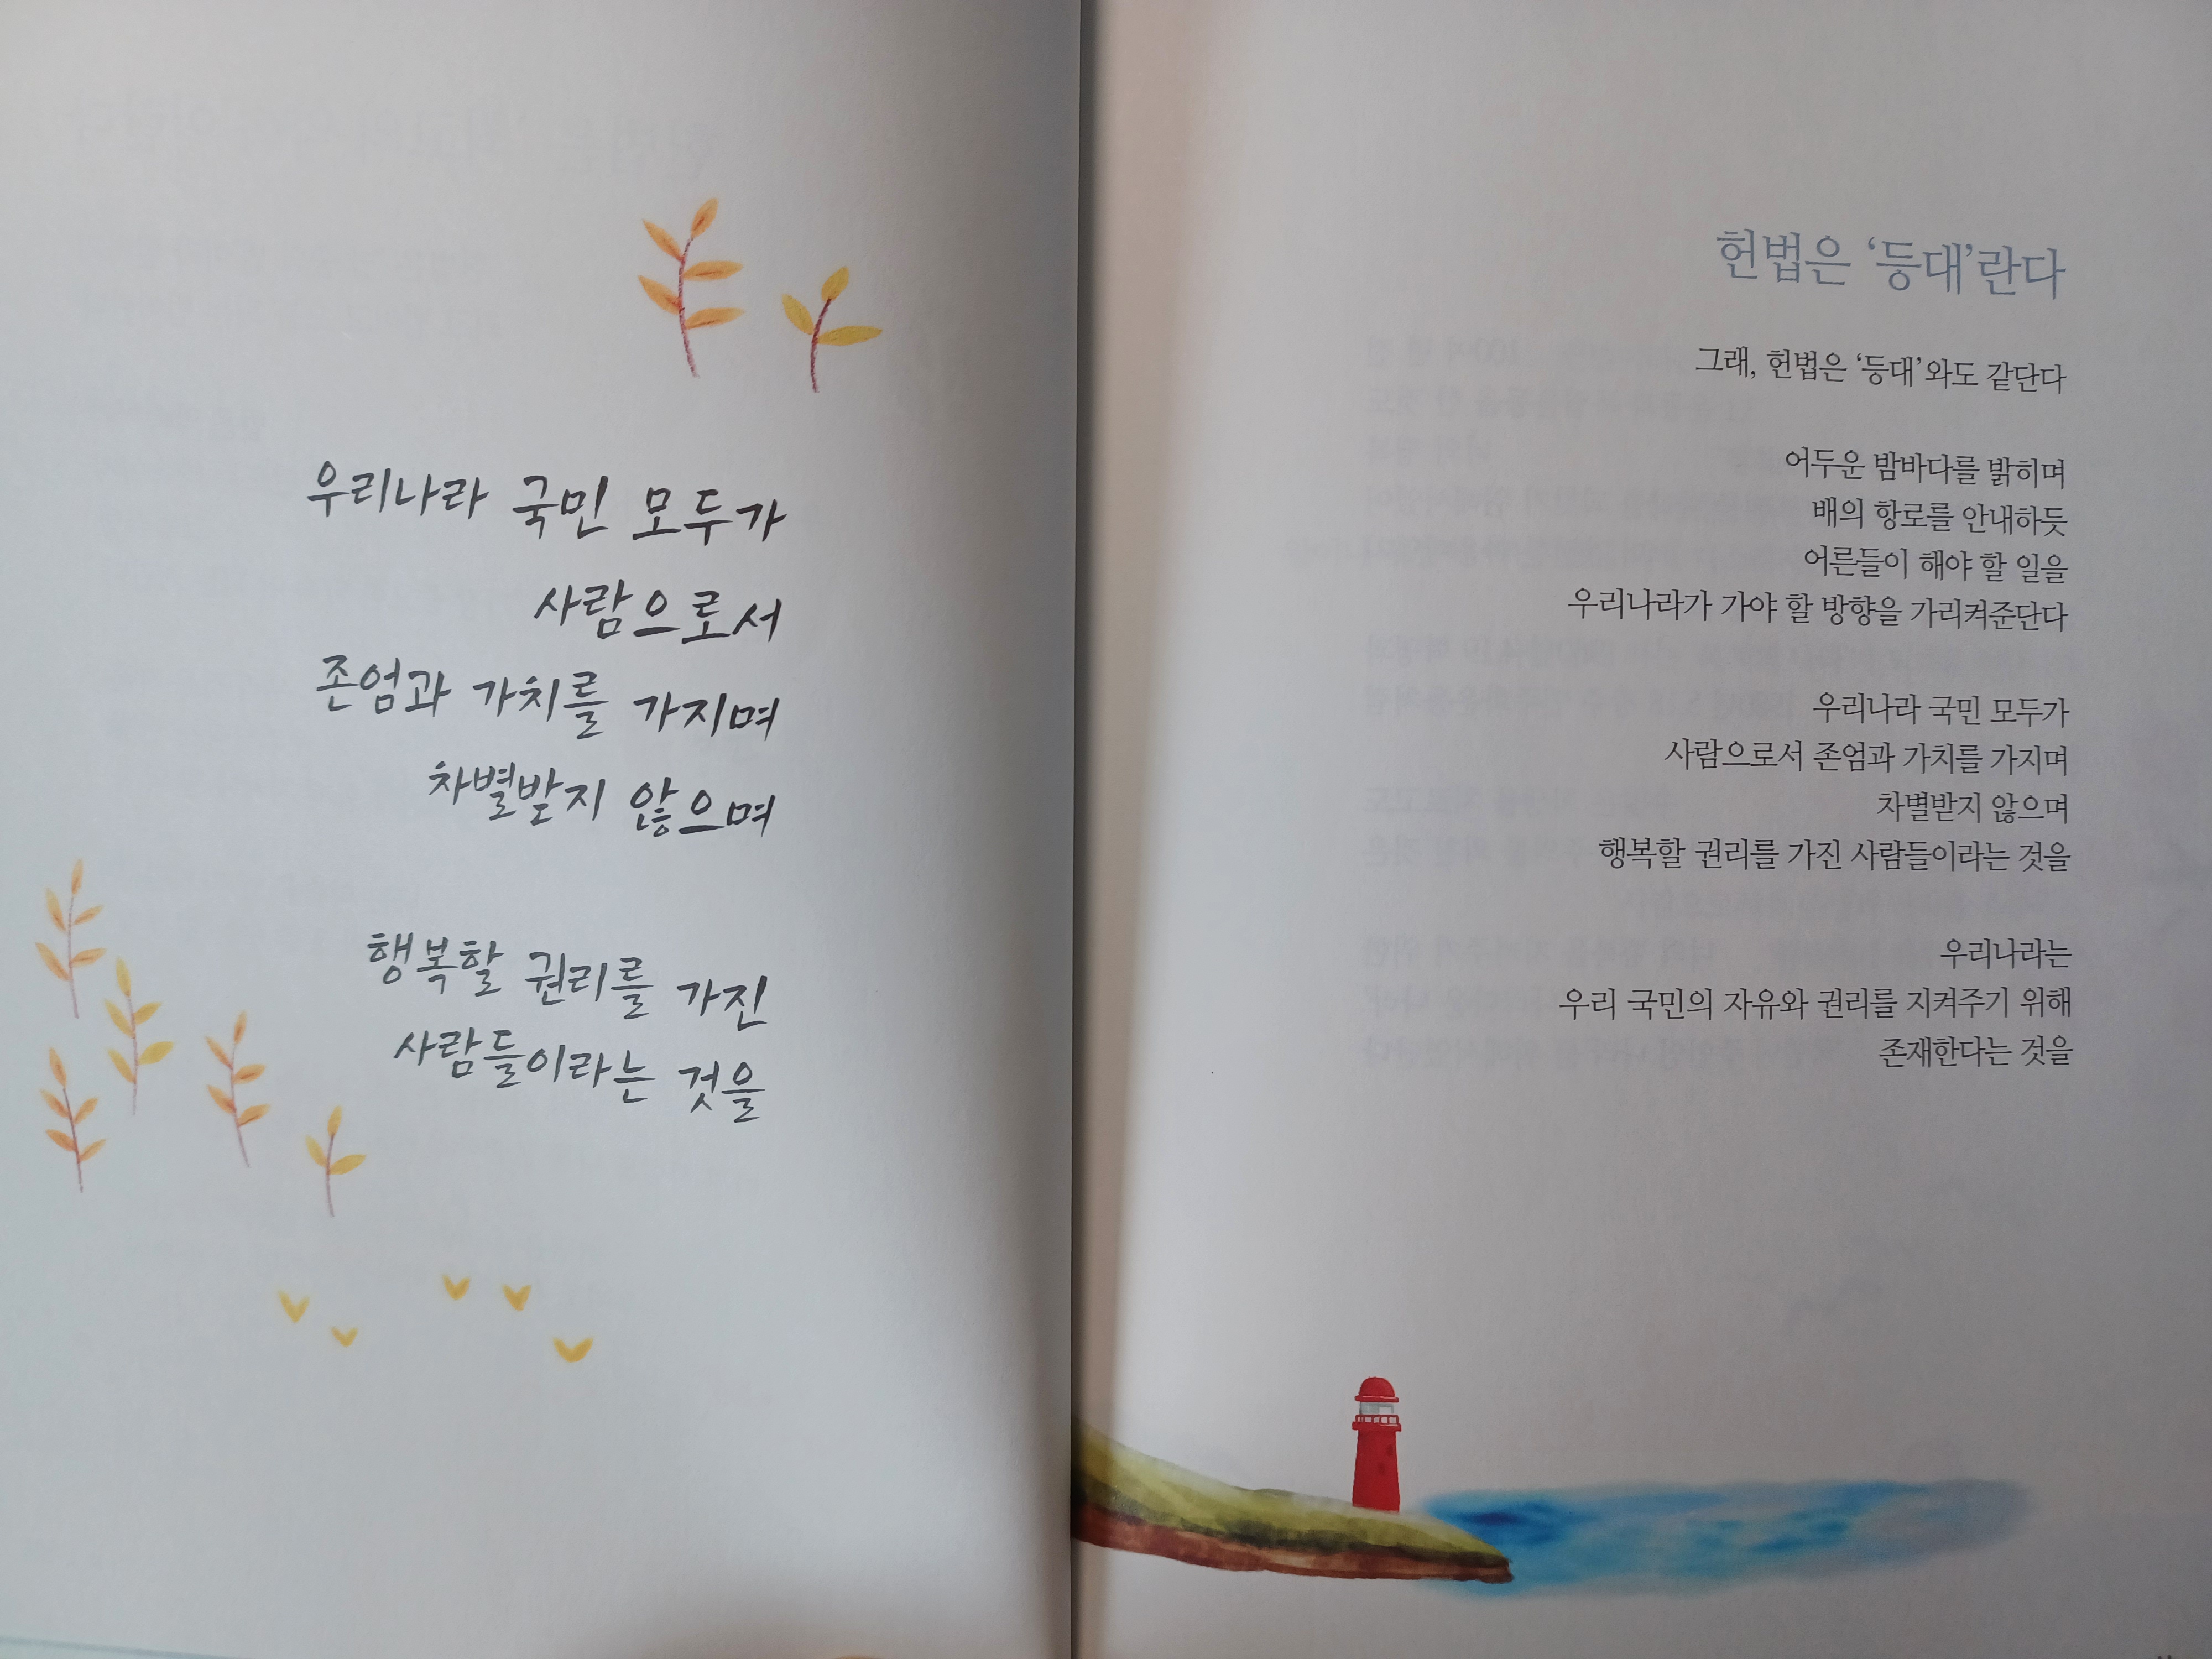 우리나라 국민 모두가
사람으로서
존엄과 가치를 가지며
차별받지 않으며
행복할 권리를 가진
사람들이라는 것을
헌법은 ‘등대’란다
그래, 헌법은 ‘등대’와도 같단다
어두운 밤바다를 밝히며
배의 항로를 안내하듯
어른들이 해야 할 일을
우리나라가 가야 할 방향을 가리켜준단다
우리나라 국민 모두가
사람으로서 존엄과 가치를 가지며
차별받지 않으며
행복할 권리를 가진 사람들이라는 것을
우리나라는
우리 국민의 자유와 권리를 지켜주기 위해
존재한다는 것을